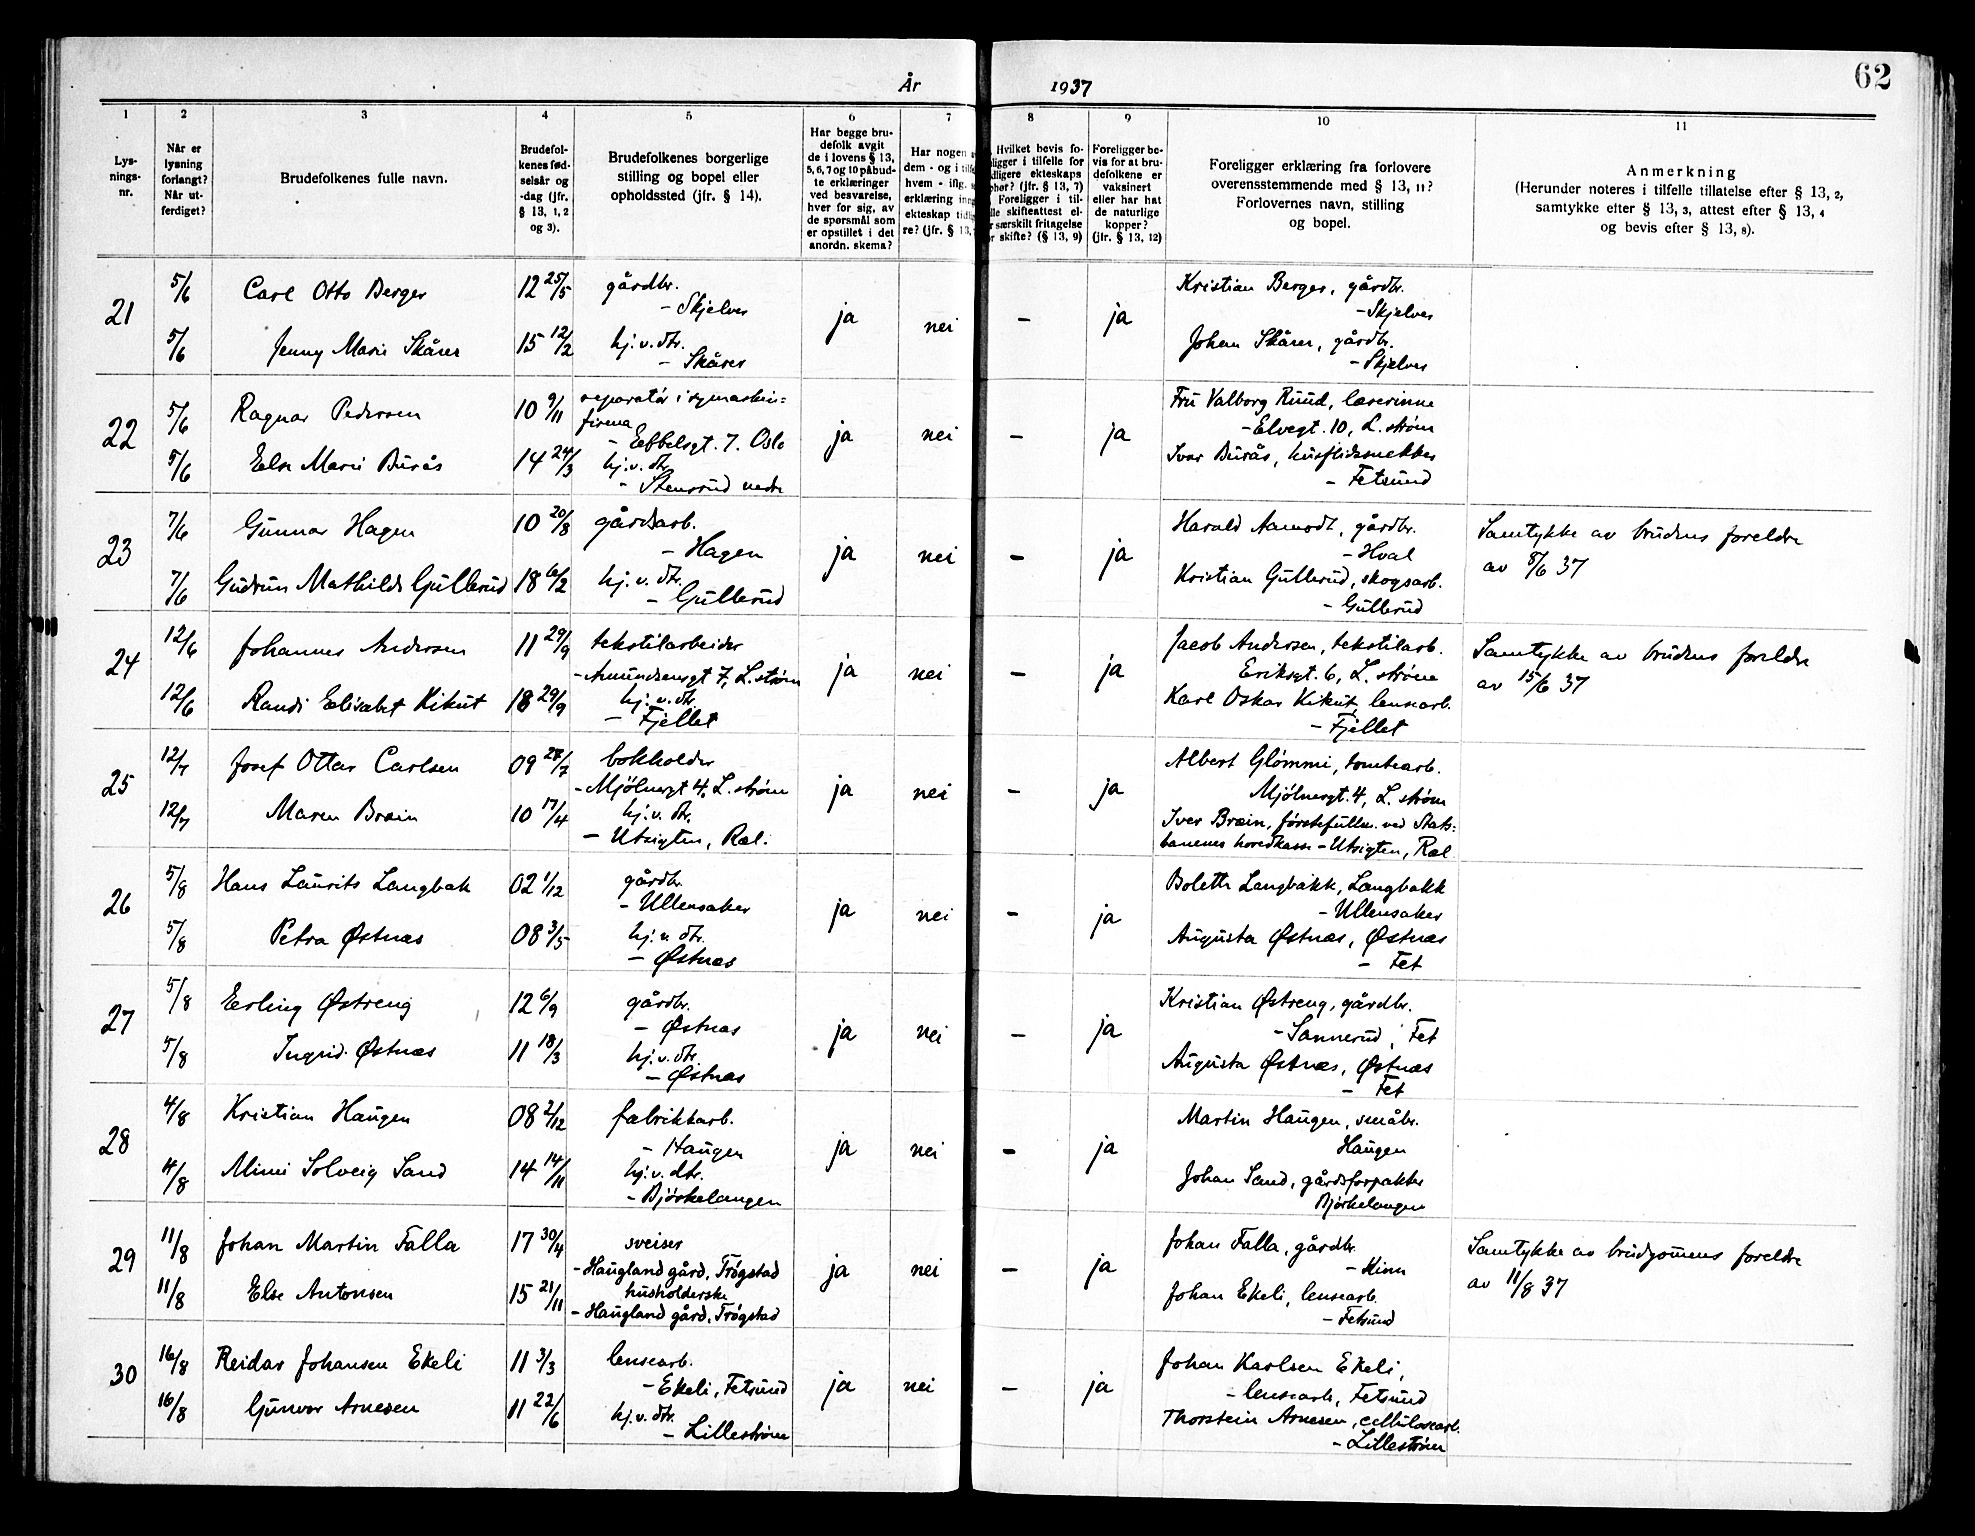 År 1937
62
1 2 3 4 5 6 7 8 9 10 11
Lys-
nings-
nr.
Når er
lysning
forlangt?
Når ut-
ferdiget?
Brudefolkenes fulle navn.
Brudefol-
kenes fød-
selsår og
-dag (jfr.
§ 13, 1, 2
og 3).
Brudefolkenes borgerlige
stilling og bopel eller
opholdssted (jfr. § 14).
Har begge bru-
defolk avgit
de i lovens § 13,
5, 6, 7 og 10 påbud-
te erklæringer
ved besvarelse,
hver for sig, av
de spørsmål som
er opstillet i det
anordn. skema?
Har nogen
dem - og i tilf
hvem - iflg.
erklæring inn
ekteskap tidl
re? (jfr. § 13,
Hvilket bevis fo-
ligger i tilfelle for
dligere ekteskaps
phør? (jfr. § 13, 7)
Foreligger i til-
lle skifteattest el-
r særskilt fritagelse
r skifte? (§ 13, 9)
Foreligger be-
vis for at bru-
defolkene er
vaksinert
eller har hat
de naturlige
kopper?
(jfr. § 13, 12)
Foreligger erklæring fra forlovere
overensstemmende med § 13, 11?
Forlovernes navn, stilling
og bopel.
Anmerkning
(Herunder noteres i tilfelle tillatelse efter § 13, 2,
samtykke efter § 13, 3, attest efter § 13, 4
og bevis efter § 13, 8).
21
5/6 Carl Otto Berger 12 25/5 gårdbr.
- Skjelver
5/6 Jenny Marie Skårer 15 12/2 hj.v. dtr.
- Skårer
ja nei - ja
Kristian Berger, gårdbr.
- Skjelver
Johan Skårer, gårdbr.
- Skjelver
22
5/6 Ragnar Pedersen 10 9/11 reparatør i symaskin=
firma
- Eebbelsgt. 7. Oslo
5/6 Else Marie Burås 14 24/3 hj.v. dtr.
- Stensrud nedre
ja nei - ja
Fru Valborg Ruud, lærerinne
- Elvegt. 10, L. strøm
Ivar Burås, husflidssnekker
- Fetsund
23
7/6 Gunnar Hagen 10 20/8 gårdsarb.
- Hagen
7/6 Gudrun Mathilde Gullerud 18 6/2 hj.v. dtr.
- Gullerud
ja nei - ja
Harald Aamodt, gårdbr.
- Hval
Kristian Gullerud, skogsarb.
- Gullerud
Samtykke av brudens foreldre
av 8/6 37
24
12/6 Johannes Andersen 11 29/9 tekstilarbeider
- Amundsensgt 7, L. strøm
12/6 Randi Elisabet Kikut 18 29/9 hj.v. dtr.
- Fjellet
ja nei - ja
Jacob Andersen, tekstilarb.
Eriksgt. 6, L. strøm
Karl Oskar Kikut, lensearb.
- Fjellet
Samtykke av brudens foreldre
av 15/6 37
25
12/7 Josef Ottar Carlsen 09 28/7 bokholder
- Mjølnersgt 4, L. strøm
12/7 Maren Bræin 10 17/4 hj.v. dtr.
- Utsigten, Ræl.
ja nei - ja
Albert Glømmi, tomtearb.
Mjølnersgt. 4, L. strøm
Iver Bræin, førstefullm. ved Stats=
banenes hovedkasse - Utsigten, Ræl
26
5/8 Hans Laurits Langbak 02 1/12 gårdbr.
- Ullensaker
5/8 Petra Østnæs 08 3/5 hj.v. dtr.
- Østnæs
ja nei - ja
Bolette Langbakk, Langbakk
- Ullensaker
Augusta Østnæs, Østnæs
- Fet
27
5/8 Erling Østreng 12 6/9 gårdbr.
- Østnæs
5/8 Ingrid Østnæs 11 18/3 hj.v. dtr.
- Østnæs
ja nei - ja
Kristian Østreng, gårdbr.
- Sannerud, Fet
Augusta Østnæs, Østnæs
- Fet
28
4/8 Kristian Haugen 08 2/12 fabrikkarb.
- Haugen
4/8 Mimi Solveig Sand 14 14/11 hj.v. dtr.
- Bjørkelangen
ja nei - ja
Martin Haugen, småbr.
Haugen
Johan Sand, gårdsforpakter
Bjørkelangen
29
11/8 Johan Martin Falla 17 30/4 sveiser
- Haugland gård, Trøgstad
11/8 Else Antonsen 15 21/11 husholderske
- Haugland gård, Trøgstad
ja nei - ja
Johan Falla, gårdbr.
- Hinn
Johan Ekeli, lensearb.
- Fetsund
Samtykke av brudgommens foreldre
av 11/8 37
30
16/8 Reidar Johansen Ekeli 11 3/3 lensearb.
- Ekeli, Fetsund
16/8 Gunvor Arnesen 11 22/6 hj.v. dtr.
- Lillestrøm
ja nei - ja
Johan Karlsen Ekeli,
- lensearb, Fetsund
Thorstein Arnesen, cellulosearb.
- Lillestrøm